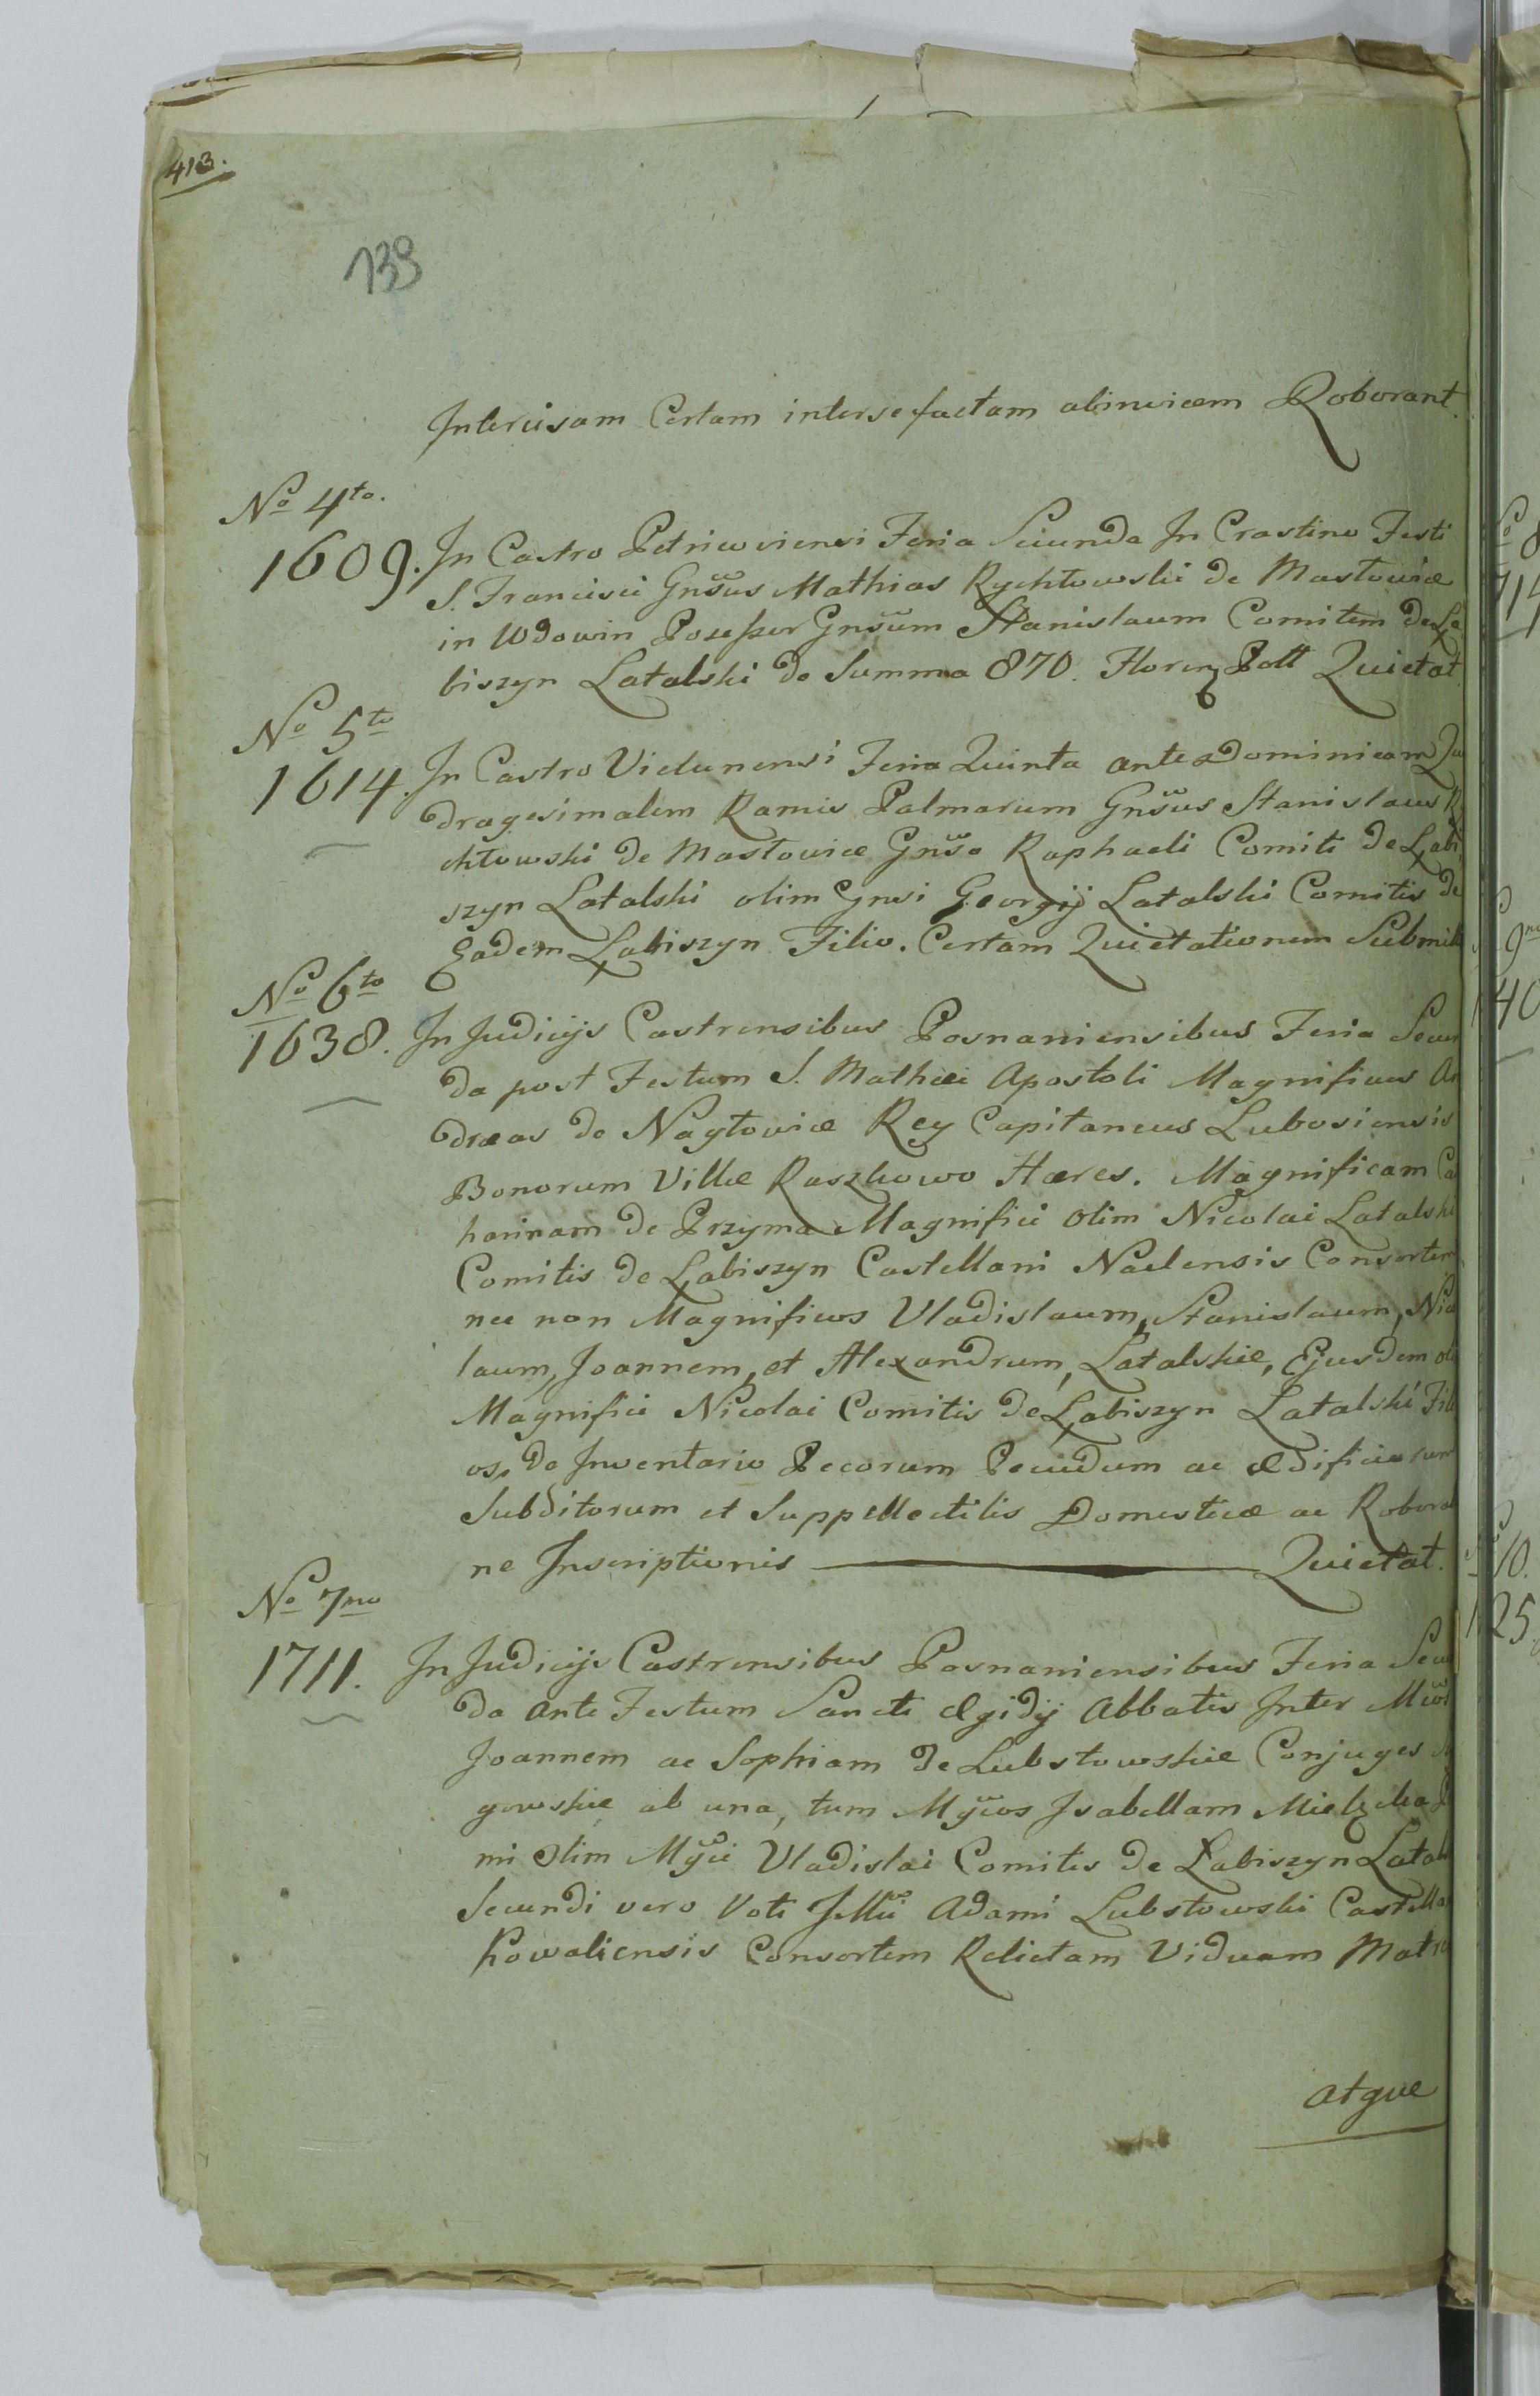 413.
139
Intercisam Certam inter se factam abinvicem Roborant.
No 4to.
1609. In Castro Petricoviensi Feria Secunda In Crastino Festi
S. Francisci Gnsus Mathias Rychłowski de Masłowice
in Wdowin Posessor Gnsum Stanislaum Comitem de Ła
biszyn Latalski de Summa 870. Floren Poll Quietat.
No 5to
1614. In Castro Vielunensi Feria Quinta ante Dominicam Qua
dragesimalem Ramis Palmarum Gnsus Stanislaus Ry
chłowski de Masłowice Gnso Raphaeli Comiti de Łabi
szyn Latalski olim Gnsi Georgij Latalski Comitis de
Eadem Łabiszyn Filio. Certam Quietationem Submitt
No 6to
1638. In Judicijs Castrensibus Posnaniensibus Feria Secun
da post Festum S. Mathiæ Apostoli Magnificus An
dreas de Nagłowice Rey Capitaneus Lubosiensis
Bonorum Villæ Raszkowo Hæres. Magnificam Ca
harinam de Przyma Magnifici olim Nicolai Latalski
Comitis de Łabiszyn Castellani Naclensis Consortem
nec non Magnificos Vladislaum, Stanislaum, Nico
laum, Joannem, et Alexandrum, Latalskie, Ejusdem oli
Magnifici Nicolai Comitis de Łabiszyn Latalski Fili
os, de Inventario Pecorum Pecudum ac ædificiorum
Subditorum et Suppellectilis Domesticæ ac Roborat
ne Inscriptionis Quietat.
No 7mo
1711. In Judicijs Castrensibus Posnaniensibus Feria Secu
da Ante Festum Sancti Ægidij Abbatis Inter Mcos
Joannem ac Sophiam de Lubstowskie Conjuges
gowskie ab una, tum Mgcos Isabellam Mielzcka
mi Olim Mgci Vladislai Comitis de Łabiszyn Latals
Secundi vero Voti Illu Adami Lubstowski Castella
Kowaliensis Consortem Relictam Viduam Matre
atque